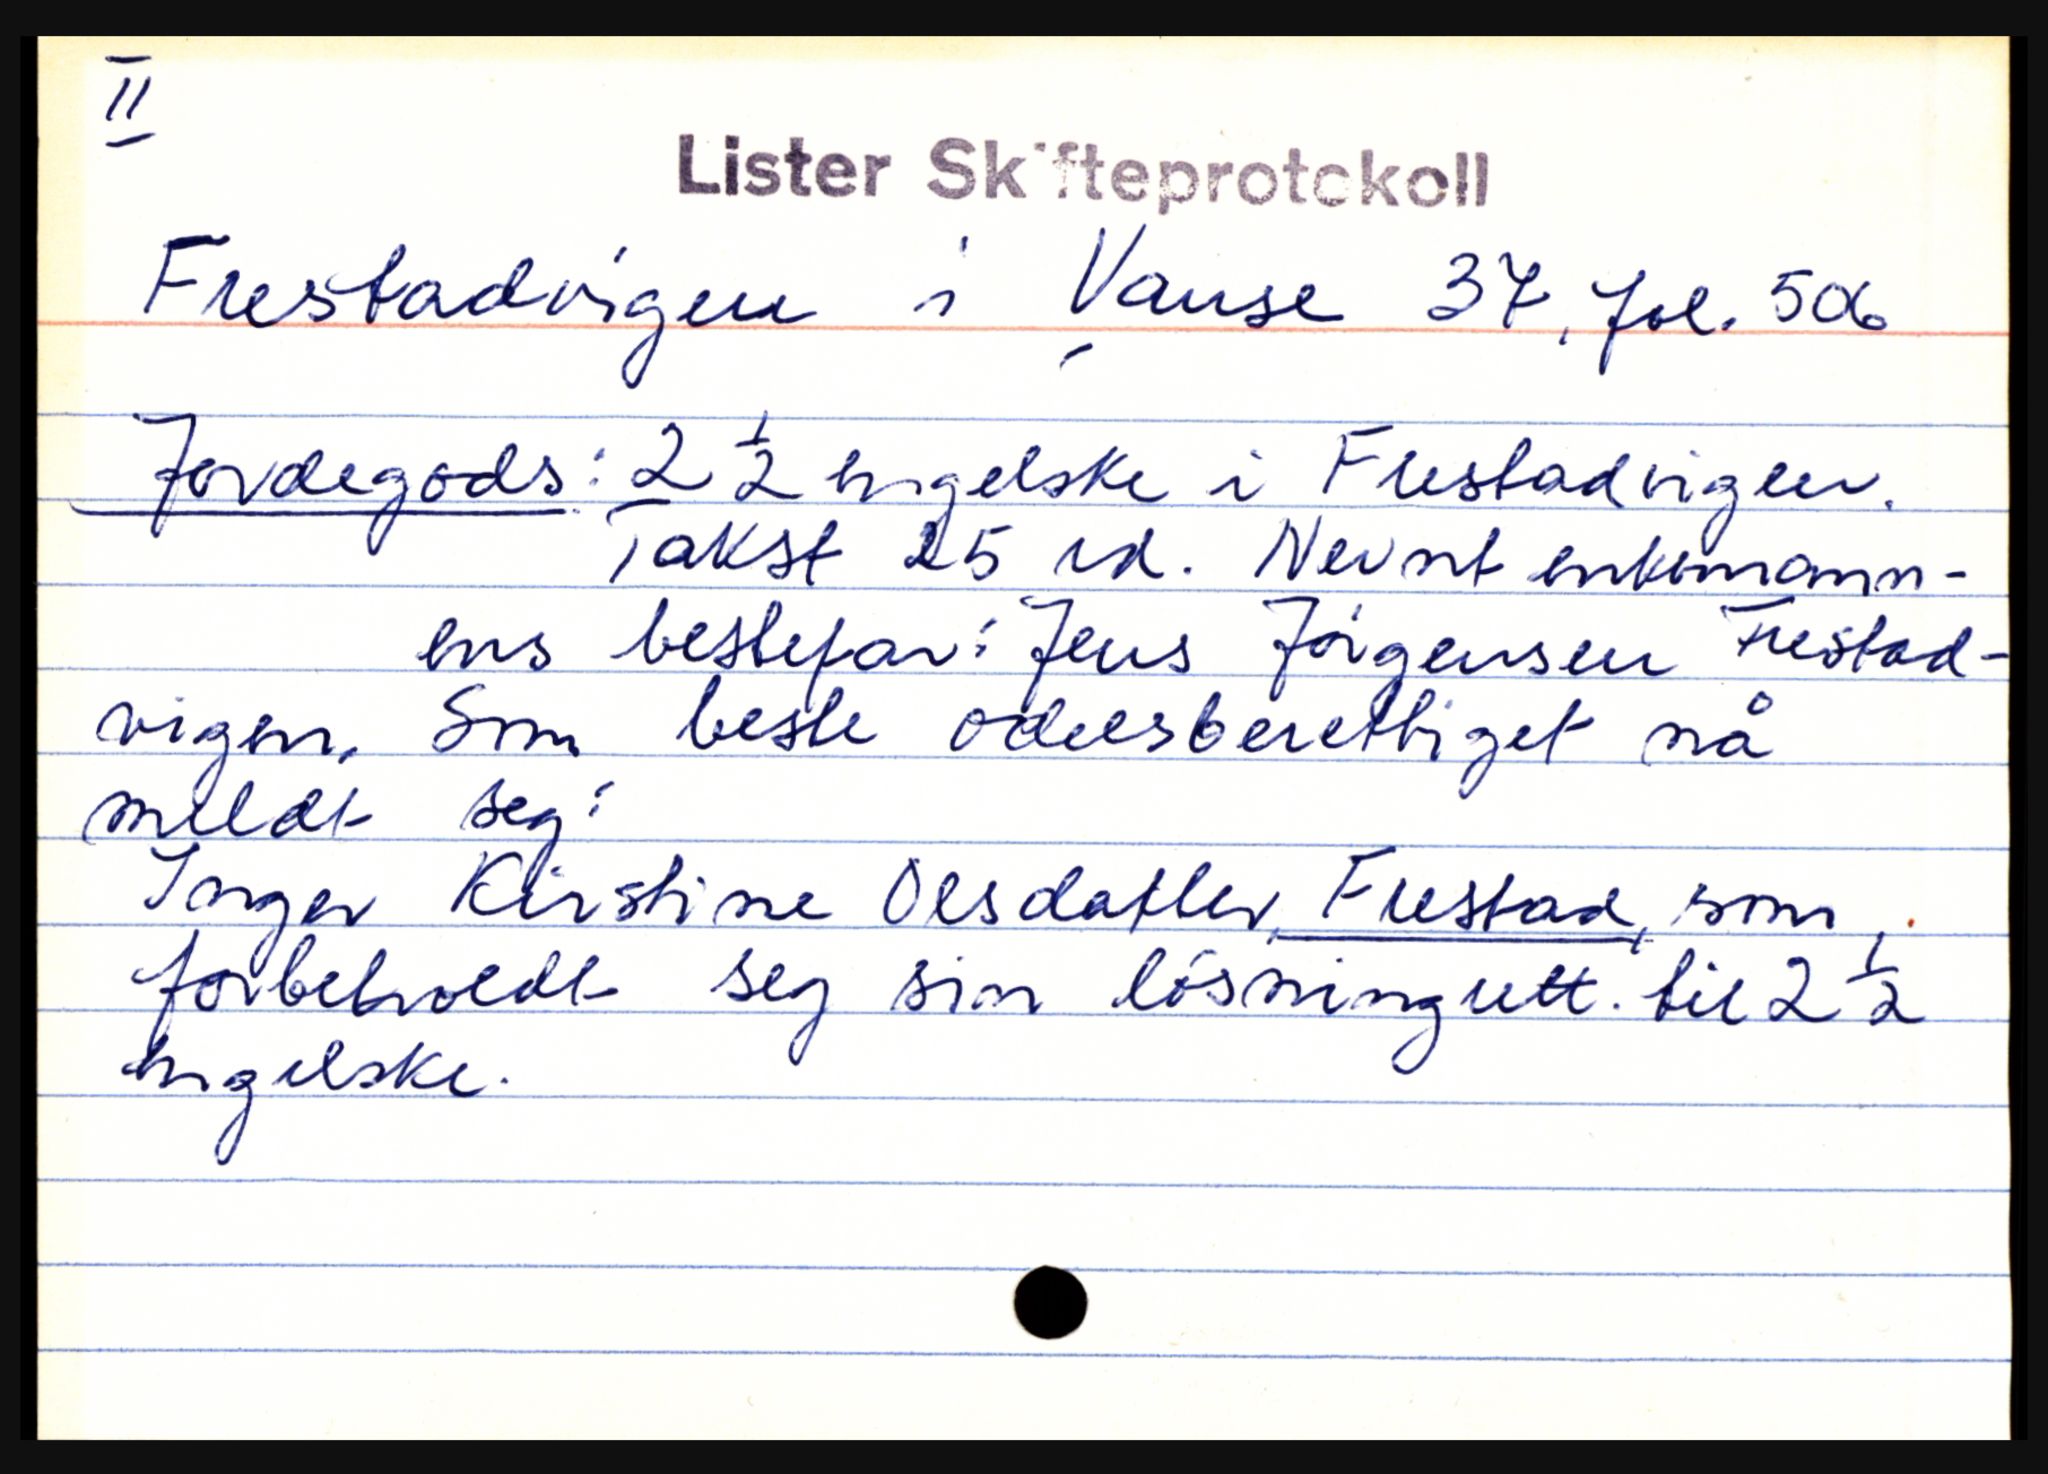 II
Lister Skifteprotokoll
Frestadvigen i Vanse 37, fol. 506
Jordegods: 2 1/2 engelske i Frestadvigen.
Takst 25 rd. Nevnt enkemann-
ens bestefar: Jens Jörgensen Frestad-
vigen. Som beste odelsberettiget nå
meldt seg:
Inger Kirstine Olsdatter, Frestad, som
forbeholdt seg sin lösningrett. til 2 1/2
engelske.